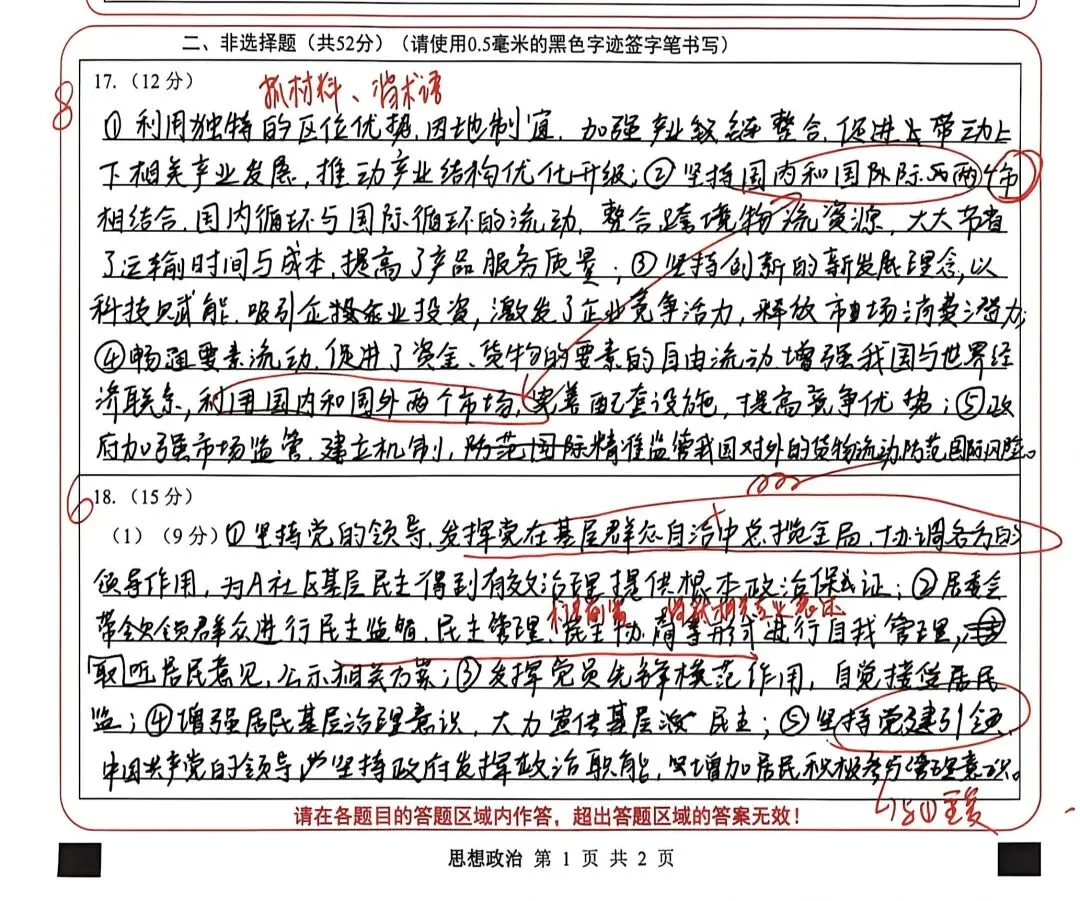 二、非选择题（共52分）（请使用0.5毫米的黑色字迹签字笔书写）
8
17.（12分）
抓材料、当术语
①利用独特的区位优势，因地制宜，加强产业链整合，促进带动上
下相关产业发展，推动产业结构优化升级；②坚持国内和国际两个市
相结合，国内循环与国际循环的流动，整合跨境物流资源，大大节省
了运输时间与成本，提高了产品服务质量；③坚持创新的新发展理念，以
科技赋能，吸引企业投资，激发了企业竞争活力，释放市场消费潜力；
④畅通要素流动，促进了资金、货物的要素的自由流动增强我国与世界经
济联系，利用国内和国外两个市场，完善配套设施，提高竞争优势；⑤政
府加强市场监管，建立机制，精准监管我国对外的货物流动防范国际风险。
6
18.（15分）
（1）（9分）①坚持党的领导，发挥党在基层群众自治中总揽全局，协调各方的
领导作用，为A社区基层民主得到有效治理提供根本政治保证；②居委会
带领群众进行民主监督，民主管理，民主协商等形式进行自我管理，
取听居民意见，公示相关方案；③发挥党员先锋模范作用，自觉接受居民
监；④增强居民基层治理意识，大力宣传基层民主；⑤坚持党建引领，
中国共产党的领导，坚持政府发挥政治职能，增加居民积极参与管理意识。
与①重复
请在各题目的答题区域内作答，超出答题区域的答案无效！
思想政治 第 1 页 共 2 页